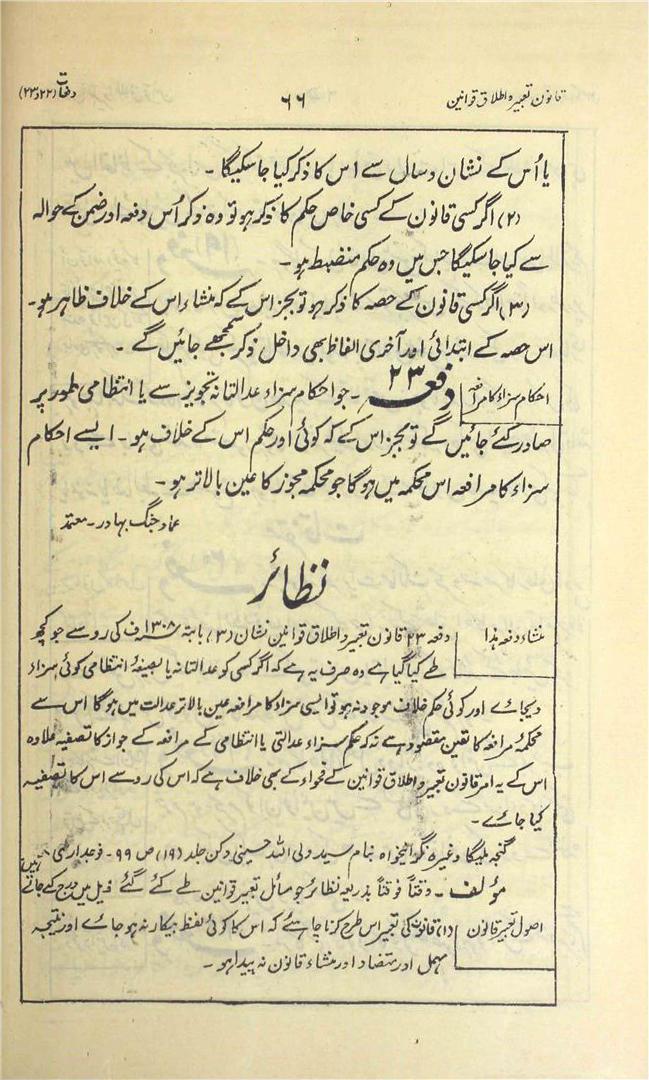 قانون تعبیر و اطلاق قوانین ۶۶ دفعات (۲۲ و ۲۳)
یا اُس کے نشان و سال سے اس کا ذکر کیا جا سکیگا ۔
(۲) اگر کسی قانون کے کسی خاص حکم کا ذکر ہو تو وہ ذکر اُس دفعہ اور ضمن کے حوالہ
سے کیا جا سکیگا جس میں وہ حکم منضبط ہو ۔
(۳) اگر کسی قانون کے حصہ کا ذکر ہو تو بجز اس کے کہ منشاء اس کے خلاف ظاہر ہو ۔
اس حصہ کے ابتدائی اور آخری الفاظ بھی داخل ذکر سمجھے جائیں گے ۔
احکام سزاء کا مرافعہ
دفعہ ۲۳ ۔ جو احکام سزاء عدالتانہ تجویز سے یا انتظامی طور پر
صادر کئے جائیں گے تو بجز اس کے کہ کوئی اور حکم اس کے خلاف ہو ۔ ایسے احکام
سزاء کا مرافعہ اس محکمہ میں ہوگا جو محکمہ مجوز کا عین بالاتر ہو ۔
عماد جنگ بہادر ۔ معتمد
نظائر
منشاء دفعہ ہذا
دفعہ ۲۳ قانون تعبیر و اطلاق قوانین نشان (۳) بابتہ ۱۳۰۸ف کی رو سے جو کچھ
طے کیا گیا ہے وہ صرف یہ ہے کہ اگر کسی کو عدالتانہ یا بصیغۂ انتظامی کوئی سزاء
دیجائے اور کوئی حکم خلاف موجود نہ ہو تو ایسی سزاء کا مرافعہ عین بالاتر عدالت میں ہوگا اس سے
محکمۂ مرافعہ کا تعین مقصود ہے نہ کہ حکم سزاء عدالتی یا انتظامی کے مرافعہ کے جواز کا تصفیہ علاوہ
اس کے یہ امر قانون تعبیر و اطلاق قوانین کے فحواء کے بھی خلاف ہے کہ اس کی رو سے اس کا تصفیہ
کیا جائے ۔
وغیرہ نگرانیخواہ بنام سید ولی اللہ حسینی دکن جلد (۱۹) ص ۹۹ ۔ فوجداری
مؤلف ۔ وقتاً فوقتاً بذریعہ نظائر جو مسائل تعبیر قوانین طے کئے گئے ذیل میں درج کئے جاتے ہیں
اصول تعبیر قانون
(۱) قانون کی تعبیر اس طرح کرنا چاہئے کہ اس کا کوئی لفظ بیکار نہ ہو جائے اور نتیجہ
مہمل اور متضاد اور منشاء قانون نہ پیدا ہو ۔